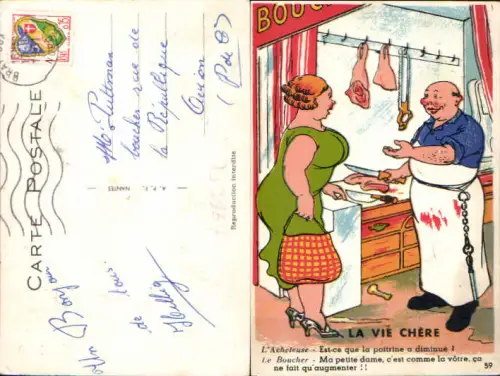 CARTE POSTALE
Mr
boucher rue de
la République
Avion
(P de C)
A. P. I. - NANTES
Reproduction interdite
Bonjour
de tous
BOUC
LA VIE CHÈRE
L'Acheteuse - Est-ce que la poitrine a diminué ?
Le Boucher - Ma petite dame, c'est comme la vôtre, ça
ne fait qu'augmenter !!
59